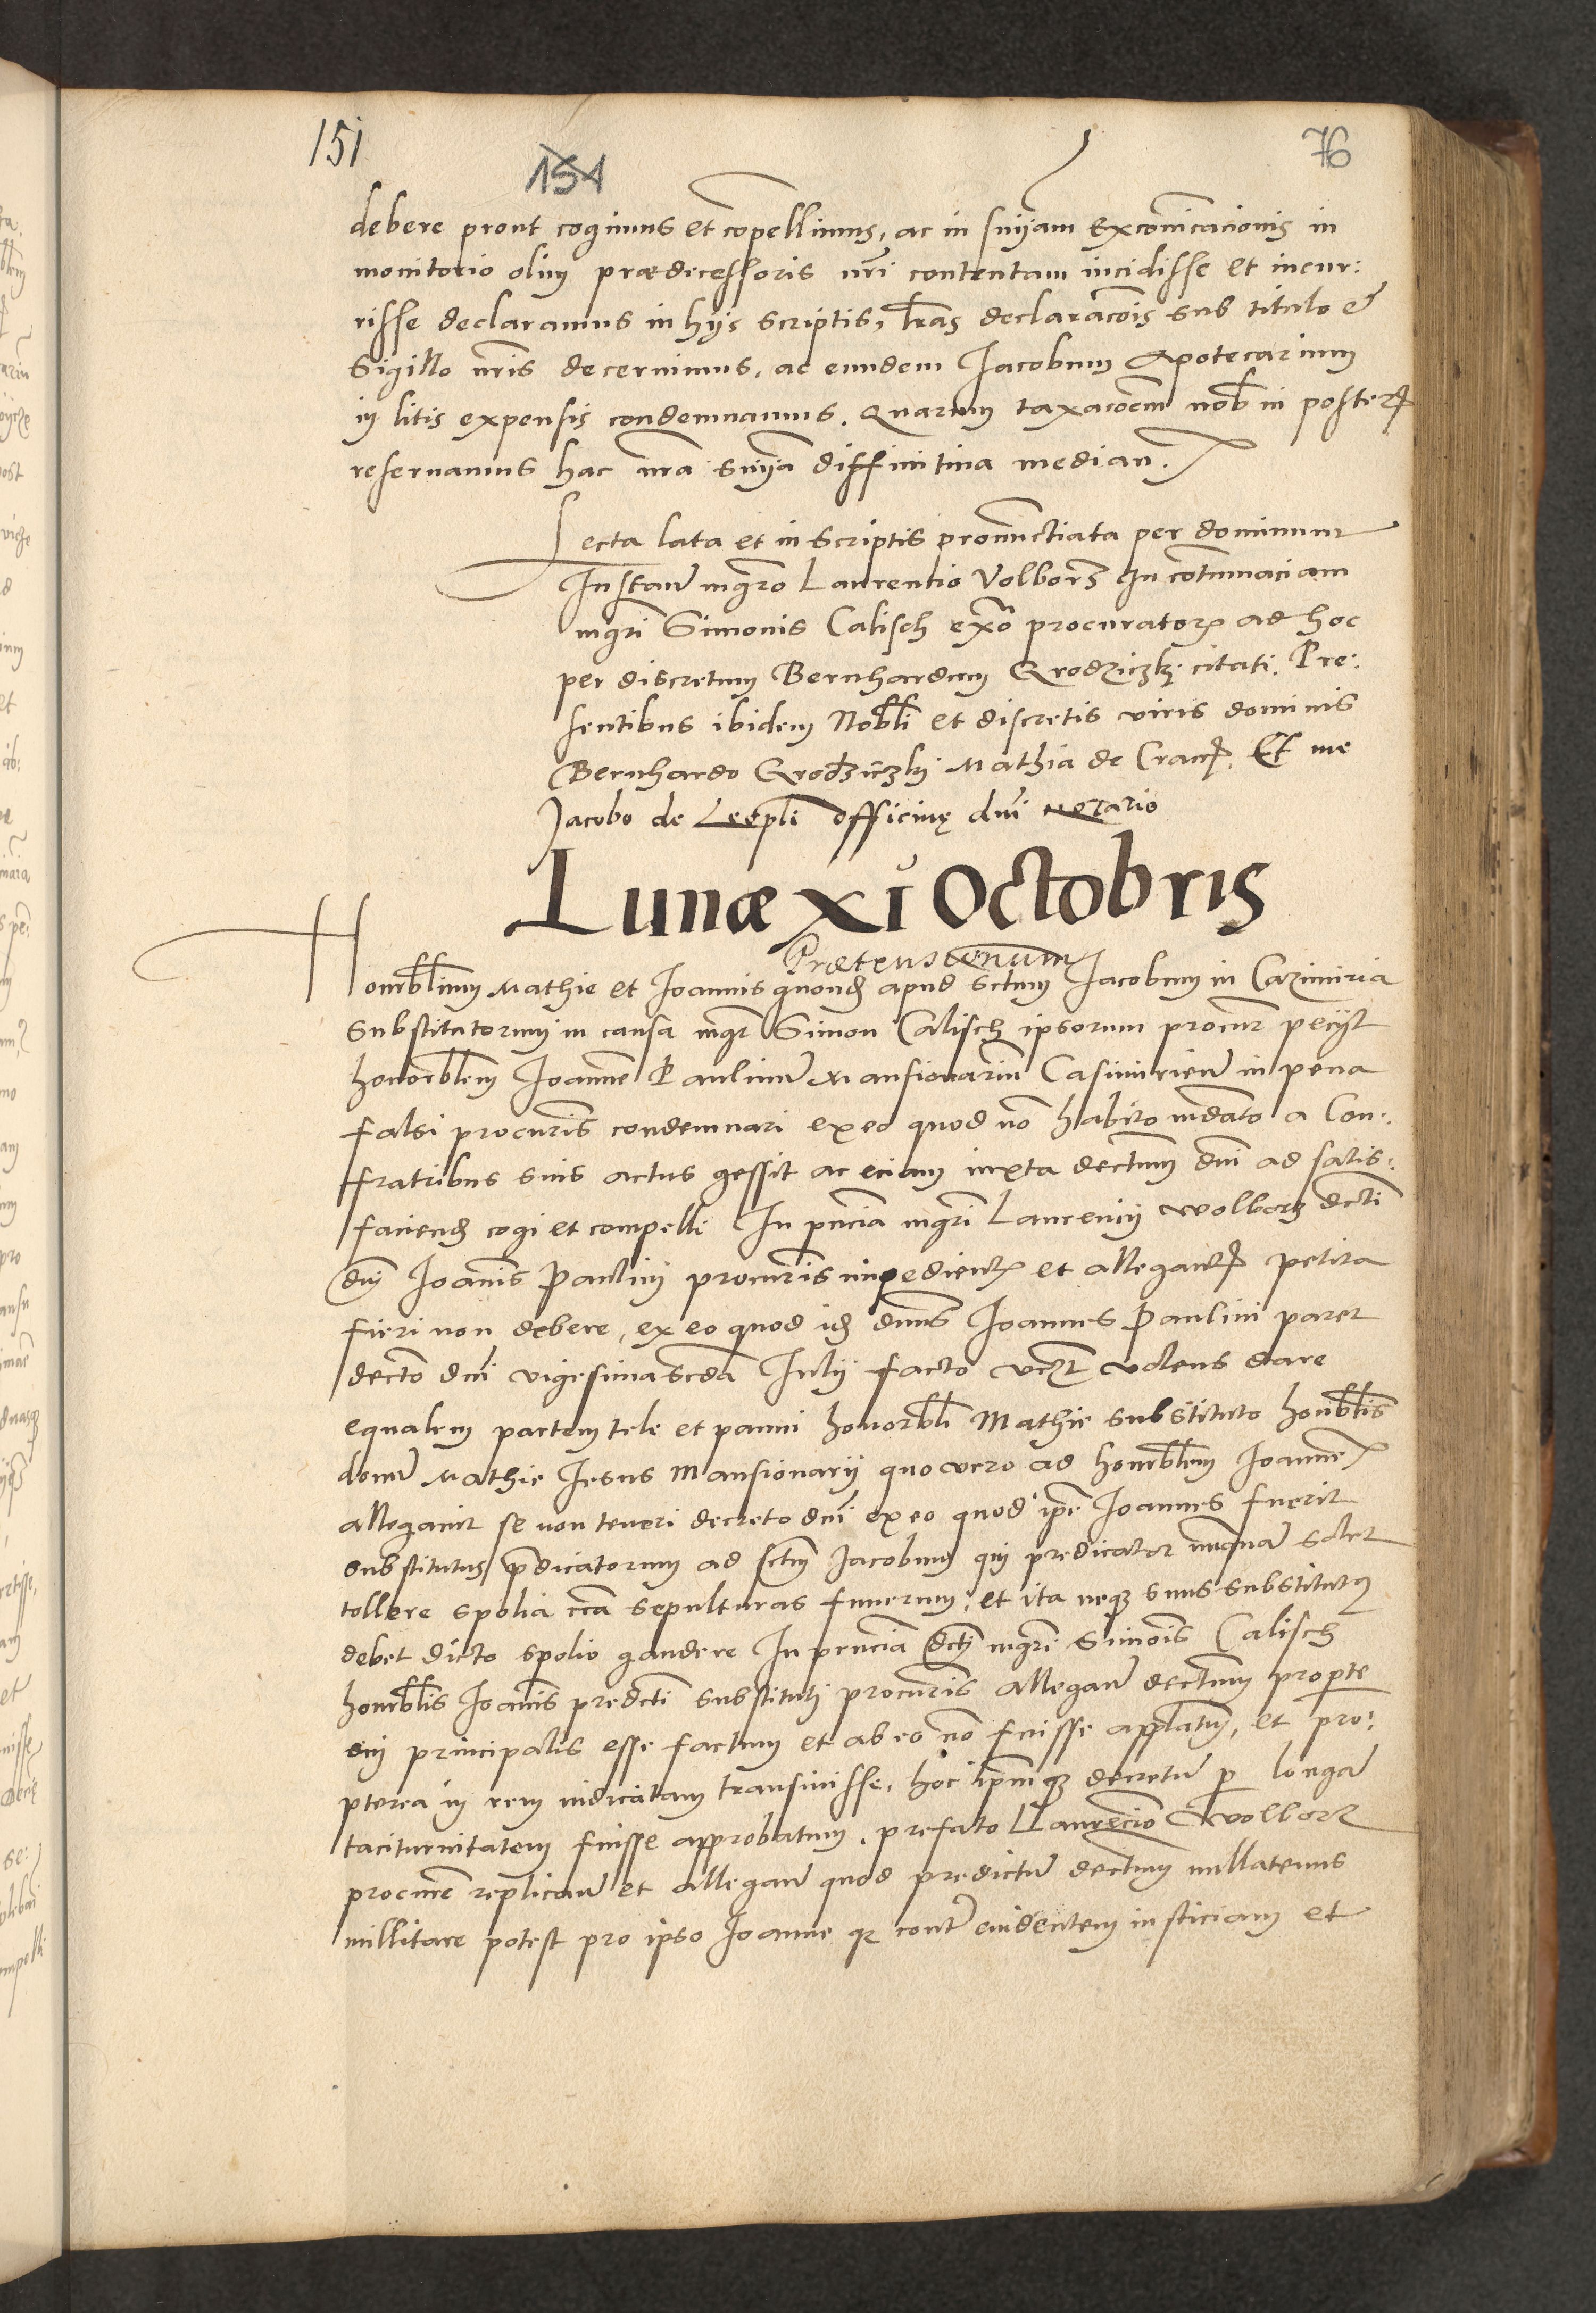 151
154
76
debere prout cogimus et compellimus, ac in snÿam excomicacionis in
monitorio olim prædecessoris nri contentam incidisse et incur:
risse declaramus in hÿs scriptis, lras declaracois sub titulo &
Sigillo nris decernimus, ac eundem Jacobum Apotecarium
in litis expensis condemnamus. Quarum taxacoem nob in poster
reservamus hac nra snÿa diffinitiva median.
Lecta lata et in scriptis pronunctiata per dominum
Instan mgro Laurentio Volborz In cotumaciam
mgri Simonis Calisch ex procurator ad hoc
per discretum Bernhardum Grodziczky citati. Pre:
sentibus ibidem Nobli et discretis viris dominis
Bernhardo Grodziczky Mathia de Crac. Et me
Jacobo de Leopli officiiq dni notario
Lunæ XI Octobris
Prætensionum
Honorblium Mathie et Joannis quond apud sctum Jacobum in Cazimiria
substitutorum in causa mgr Simon Calisch ipsorum procur pecÿt
honorblem Joanne Paulinu Mansionariu Casimirien in pena
falsi procuris condemnari ex eo quod no habito mdato a Con:
fratribus suis actus gessit ac eciam iuxta dectum dni ad satis:
faciend cogi et compelli In pncia mgri Laurencij Wolborz dcti
dni Joanis Paulinj procuris inpedient et allegant petita
fieri non debere, ex eo quod id dnus Joannes Paulini paret
decto dni vigesimascda Julÿ facto vct volens dare
equalem partem tele et panni honorbli Mathie substituto honblis
domi Mathie Jesus Mansionarÿ quo vero ad honrblem Joanne
allegavit se non teneri decreto dni ex eo quod ipe Joannes fuerit
substitutus pdicatorum ad sctum Jacobum qui predicator nunqua solet
tollere spolia cca sepulturas funerum, et ita neq suus substitutus
debet dicto spolio gaudere In prncia dcti mgri Simois Calisch
honrblis Joanis predcti substituti procuris allegan dectum pro pte
sui principalis esse factum et ab eo no fuisse applatum, et pro:
pterea in rem iudicatam transivisse, hoc ipmq decretu p longa
taciturnitatem fuisse approbatum. prefato Laurecio Wolborz
procure replican et allegan quod predictu dectum nullatenus
millitare potest pro ipso Joanne q contr evidentem iusticiam et